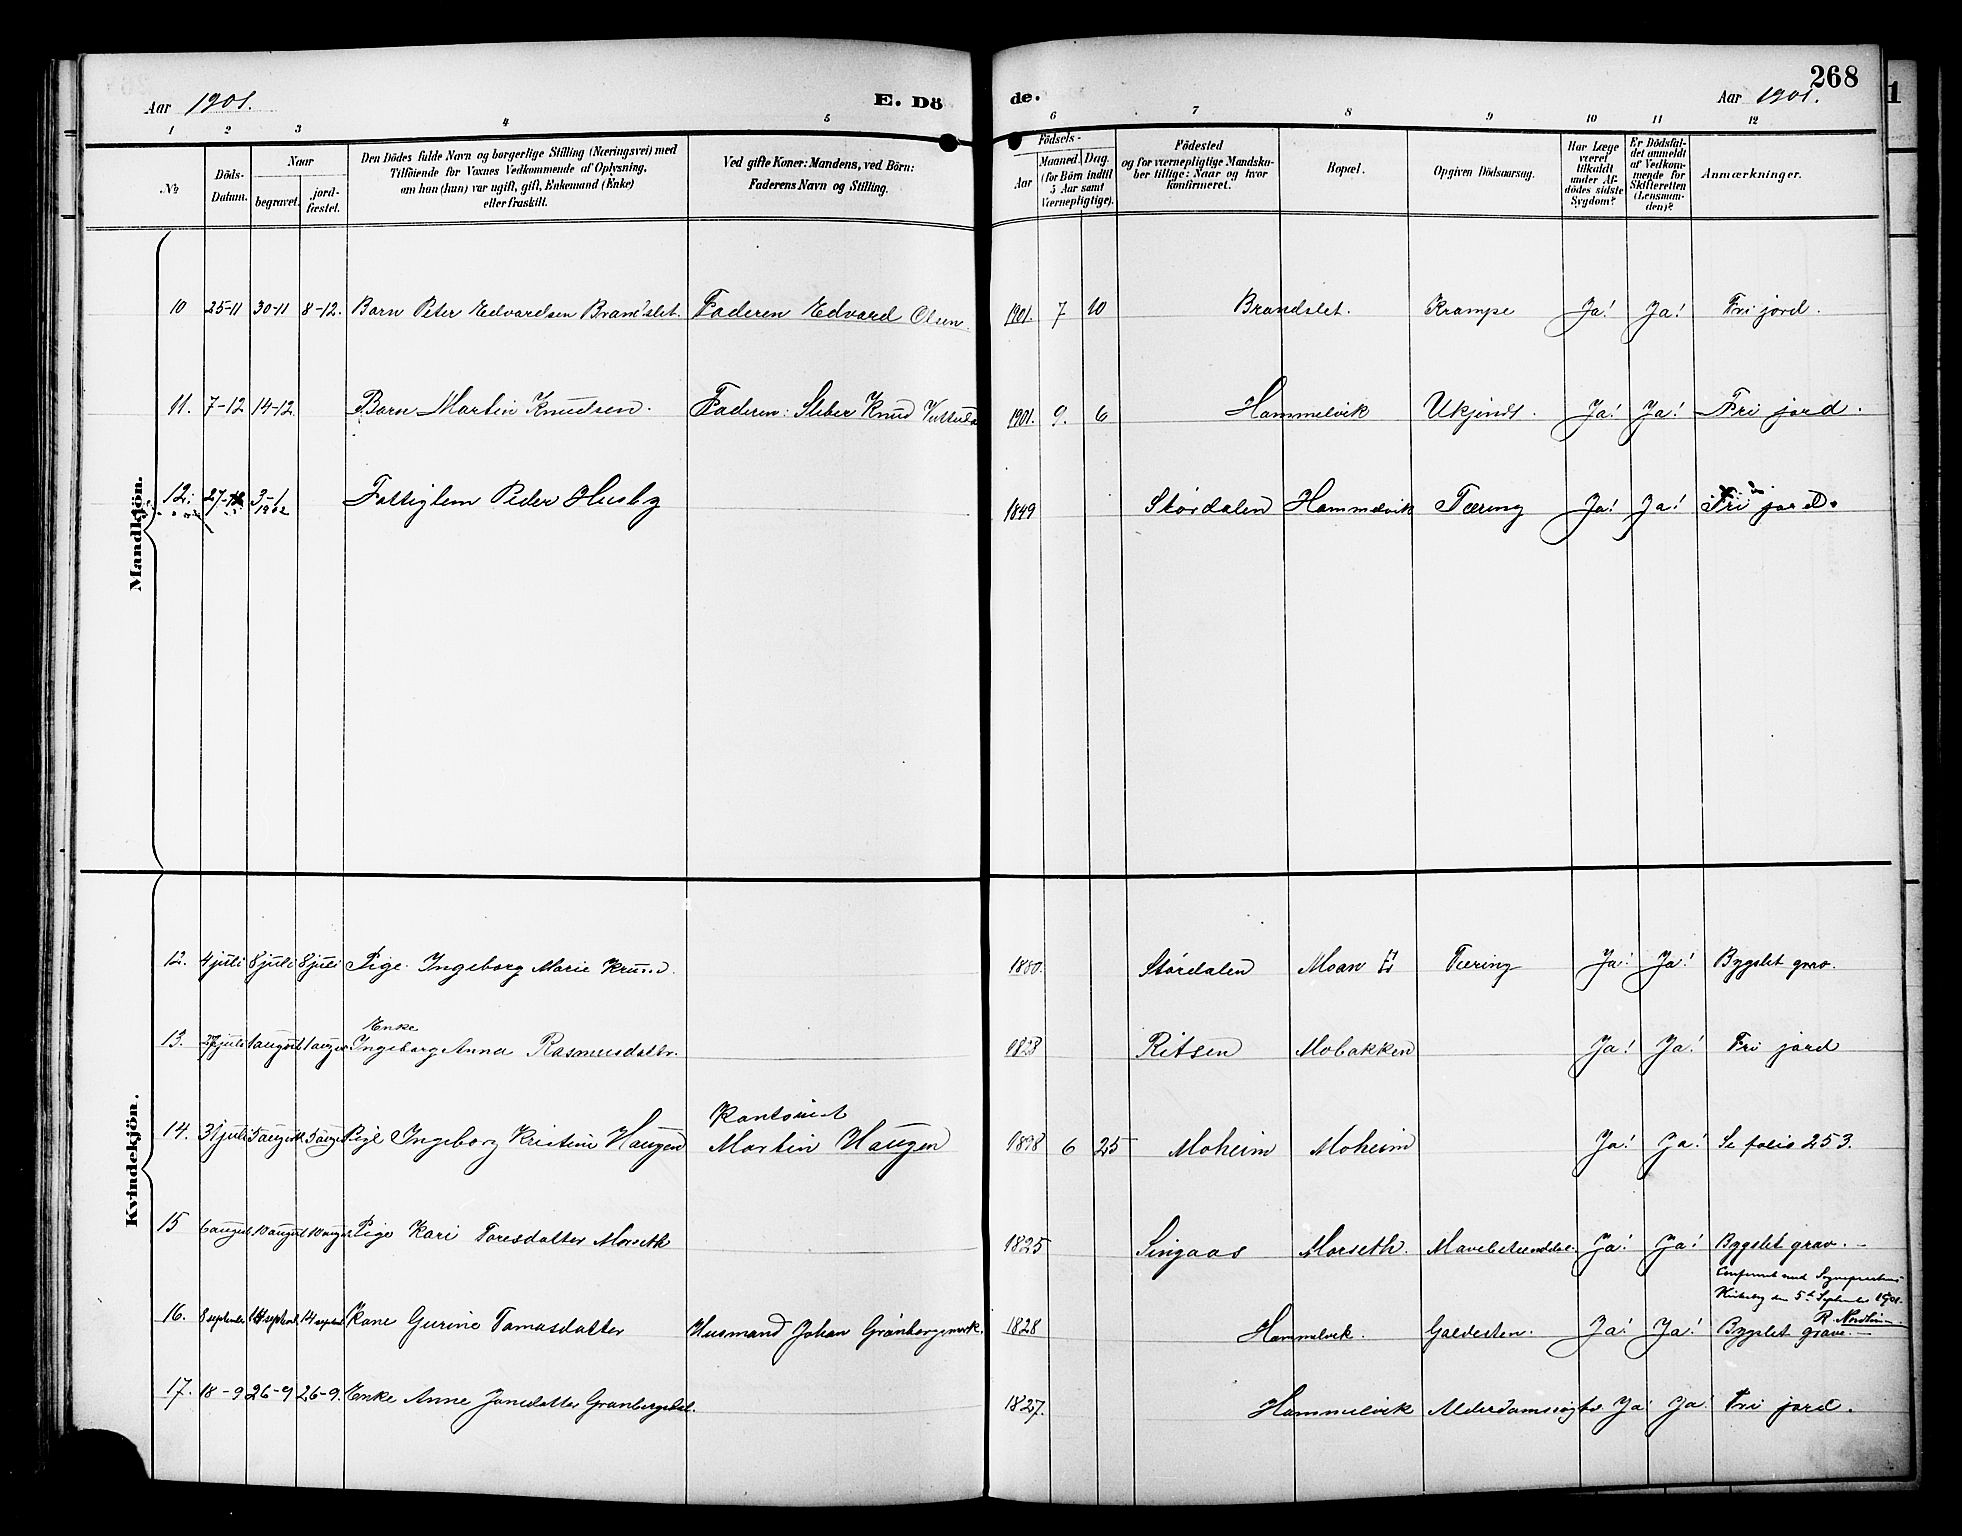 268
Aar 1901. E. Dö de. Aar 1901.
1 2 3 4 5 6 7 8 9 10 11 12
No
Döds-Datum.
Naar
begravet.
jord-fæstet.
Den Dödes fulde Navn og borgerlige Stilling (Næringsvei) med
Tilföiende for Voxnes Vedkommende af Oplysning,
om hun (han) var ugift, gift, Enkemand (Enke)
eller fraskilt.
Ved gifte Koner: Mandens, ved Börn:
Faderens Navn og Stilling.
Födsels-
Aar
Maaned. Dag.
(for Börn indtil
5 Aar samt
Værnepligtige).
Födested
og for værnepligtige Mandska-
ber tillige: Naar og hvor
konfirmeret.
Bopæl.
Opgiven Dödsaarsag.
Har Læge
været
tilkaldt
under Af-
dödes sidste
Sygdom?
Er Dödsfal-
det anmeldt
af Vedkom-
mende for
Skifteretten
(Lensman-
den)?
Anmærkninger.
Mandkjön.
10 25-11 30-11 8-12. Barn Peter Edvardsen Brandslet. Faderen Edvard Olsen. 1901 7 10 Brandslet. Krampe Ja! Ja! Fri jord.
11. 7-12 14-12 Barn Martin Knudsen. Faderen: Sliber Knud 1901. 9. 6 Hammelvik Ukjendt. Ja! Ja! Fri jord.
12. 27-12 3-1 1902 Fattiglem Peder Husby 1849 Stördalen Hammelvik Tæring Ja! Ja! Fri jord.
Kvindekjön.
12. 4 juli 8 juli 8 juli Pige Ingeborg Marie 1880. Stördalen Moan Tæring Ja! Ja! Bygslet grav.
Enke
13. juli 1 august 1 august Ingeborg Anna Rasmusdatter. 1823 Ritsen Mobakken Ja! Ja! Fri jord
Kantonist
14. 31 juli 5 august 5 august Pige Ingeborg Kristine Haugen Martin Haugen 1898 6 25 Moheim Moheim Ja! Ja! Se folio 253.
15 6 august 10 august 10 august Pige Kari Toresdatter Morseth 1825 Singaas Morseth. Ja! Ja! Bygslet grav.
Kirkeby den 5te September 1901.
R. Nordheim
16. 8 september 14 september 14 september Kone Gurine Tomasdatter Husmand Johan Grönbergsmark. 1828 Hammelvik. Galdesten. Ja! Ja! Bygslet grave.
17. 18-9 26-9 26-9. Enke Anne Jonsdatter 1827. Hammelvik Alderdomssvaghed Ja Ja! Fri jord.